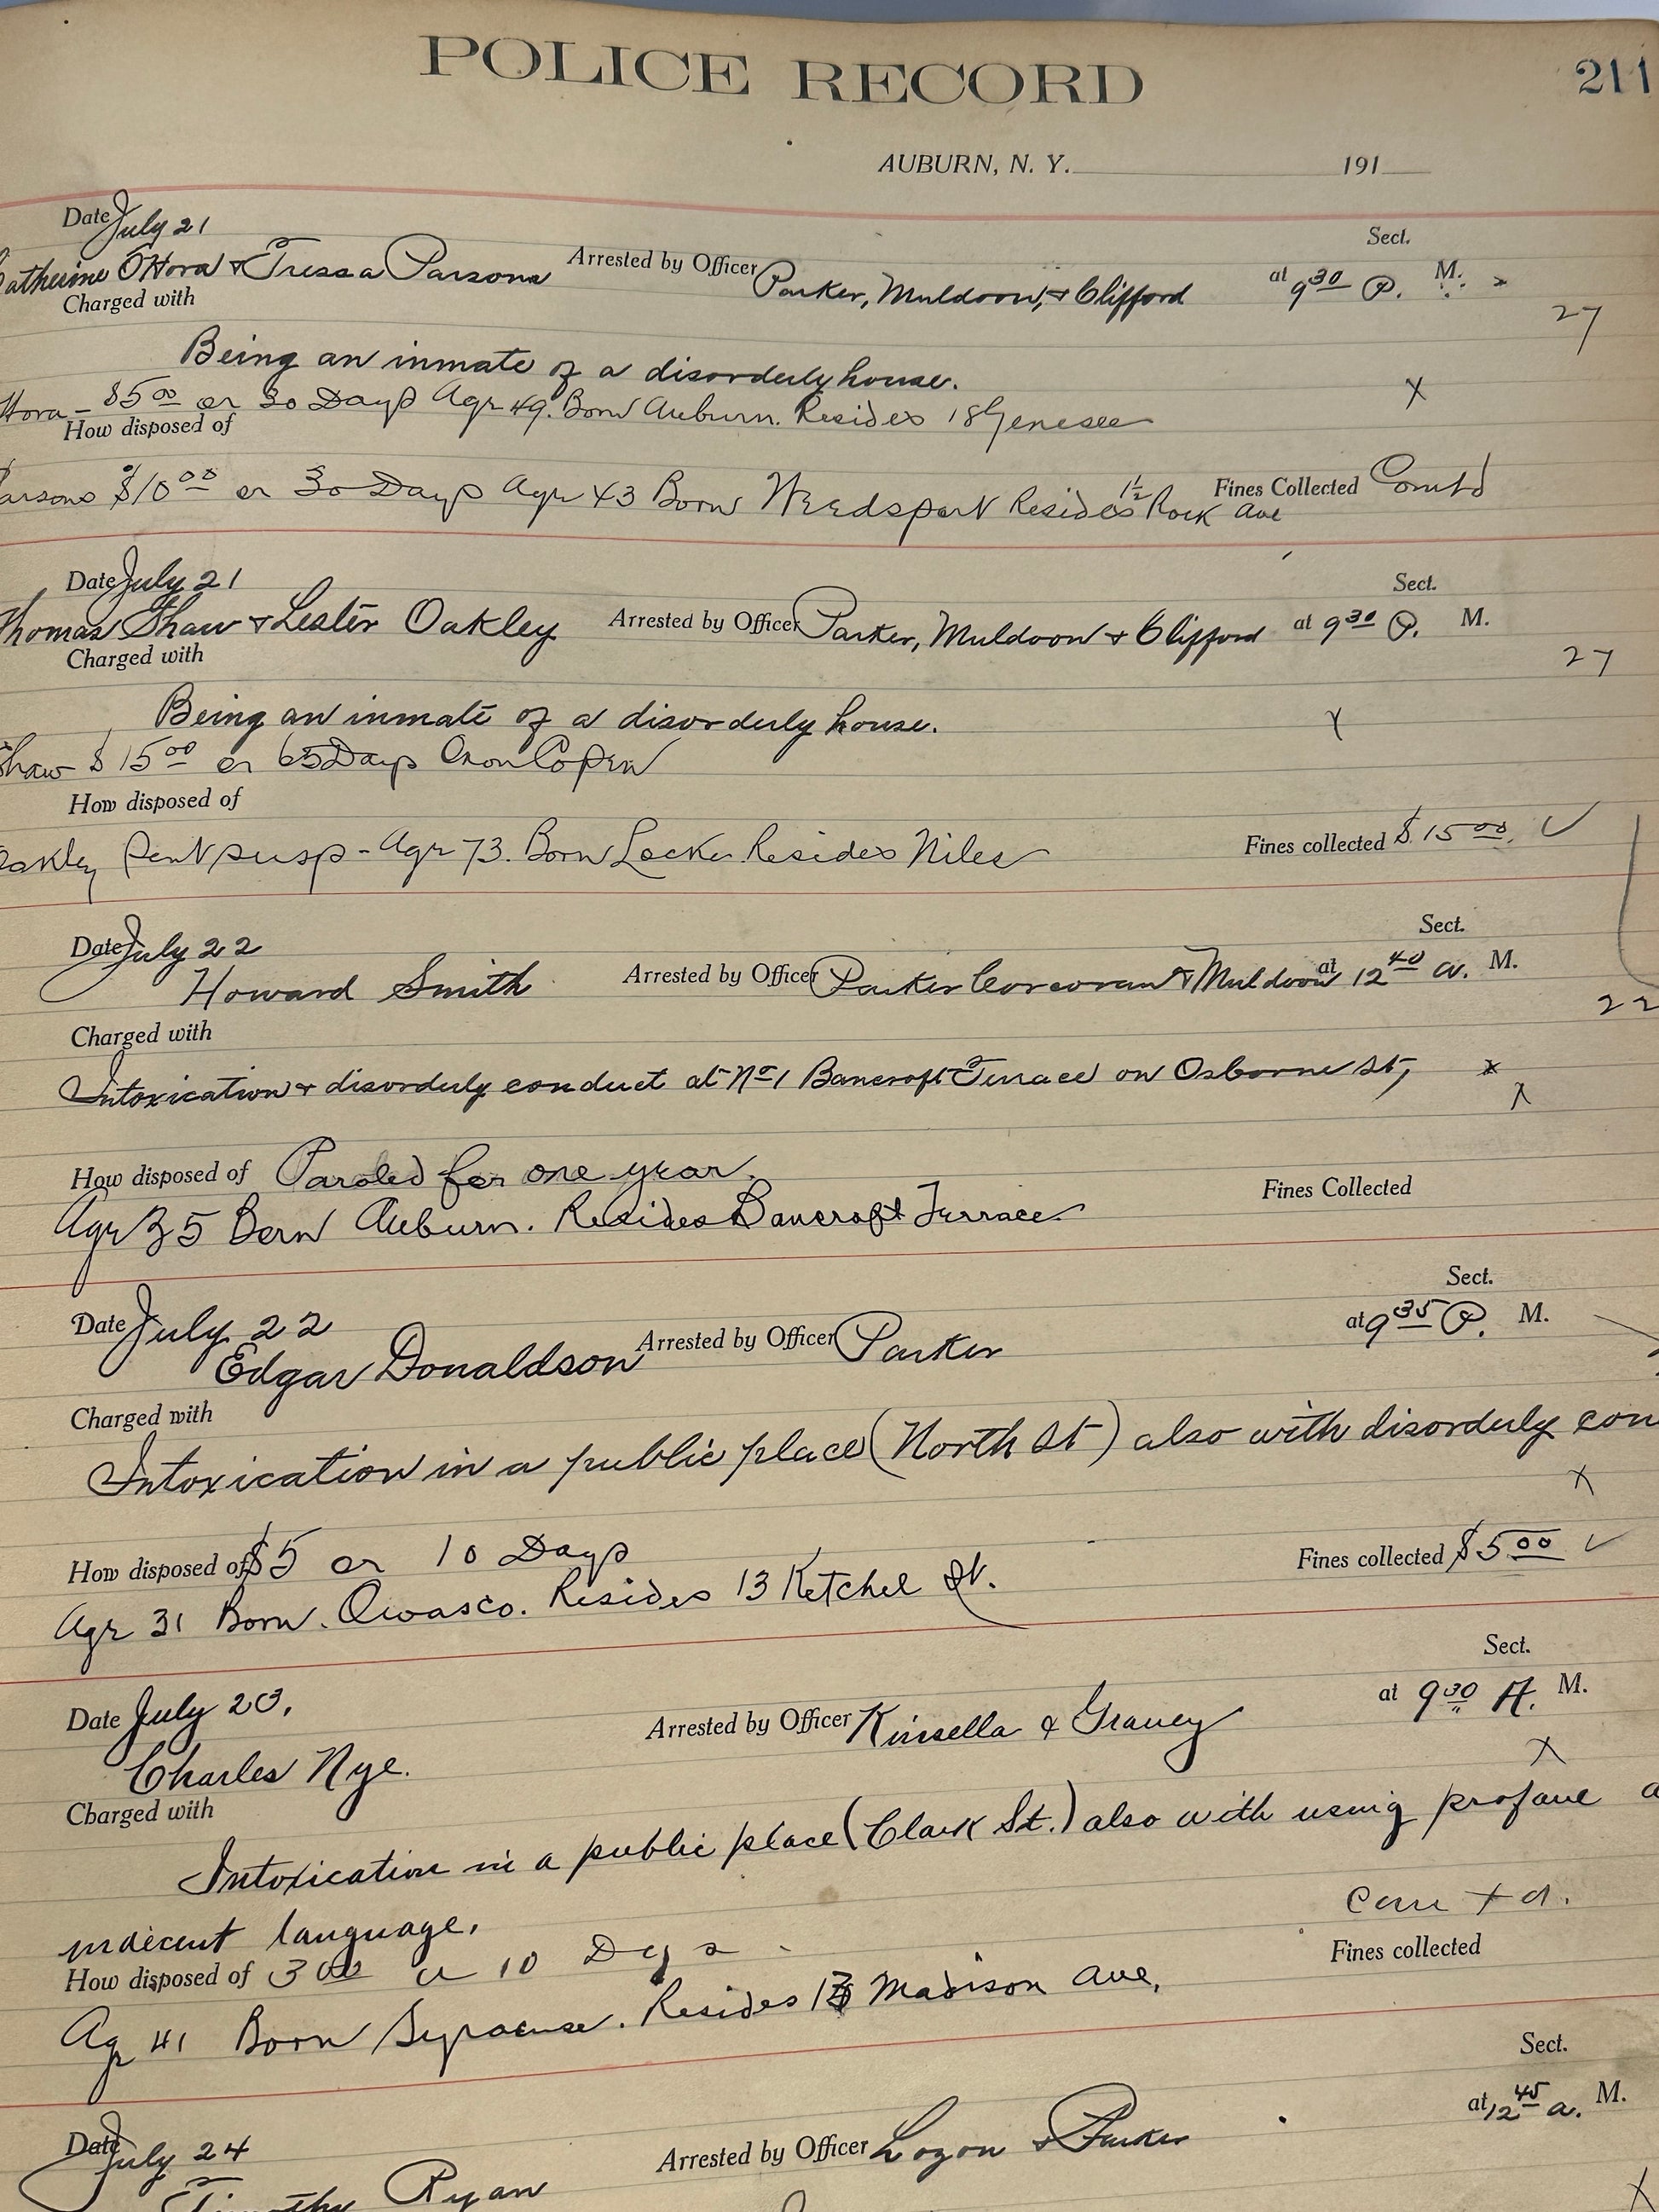 POLICE RECORD 211
AUBURN, N. Y. 191
Date July 21 Sect.
Catherine O'Hora & Tressa Parsons Arrested by Officer Parker, Muldoon, & Clifford at 9 30 P. M.
Charged with 27
Being an inmate of a disorderly house.
Hora - $5 00 or 30 Days Age 49. Born Auburn. Resides 18 Genesee X
How disposed of
Parsons $10 00 or 30 Days Age 43 Born Weedsport Resides 1 1/2 Rock Ave Fines Collected Comtd
Date July 21 Sect.
Thomas Shaw & Lester Oakley Arrested by Officer Parker, Muldoon & Clifford at 9 30 P. M.
Charged with 27
Being an inmate of a disorderly house. X
Shaw $15 00 or 65 Days
How disposed of
Oakley Sent susp - Age 73. Born Locke. Resides Niles Fines collected $15 00. ✓
Date July 22 Sect.
Howard Smith Arrested by Officer Parker Corcoran & Muldoon at 12 40 a. M.
Charged with 22
Intoxication & disorderly conduct at No 1 Bancroft Terrace on Osborne St, x
X
How disposed of Paroled for one year. Fines Collected
Age 35 Born Auburn. Resides Bancroft Terrace
Date July 22 Sect.
Edgar Donaldson Arrested by Officer Parker at 9 35 P. M.
Charged with
Intoxication in a public place (North St) also with disorderly con
X
How disposed of $5 or 10 Days Fines collected $5 00 ✓
Age 31 Born. Owasco. Resides 13 Ketchel St.
Date July 23, Sect.
Charles Nye. Arrested by Officer Kinsella & Gravey at 9 30 A. M.
Charged with X
Intoxication in a public place (Clark St.) also with using profane a
indecent language. Com t d.
How disposed of 3 00 or 10 Dys Fines collected
Age 41 Born Syracuse. Resides Madison Ave,
Date July 24 Sect.
Timothy Ryan Arrested by Officer Logon & Parker at 12 45 a. M.
X